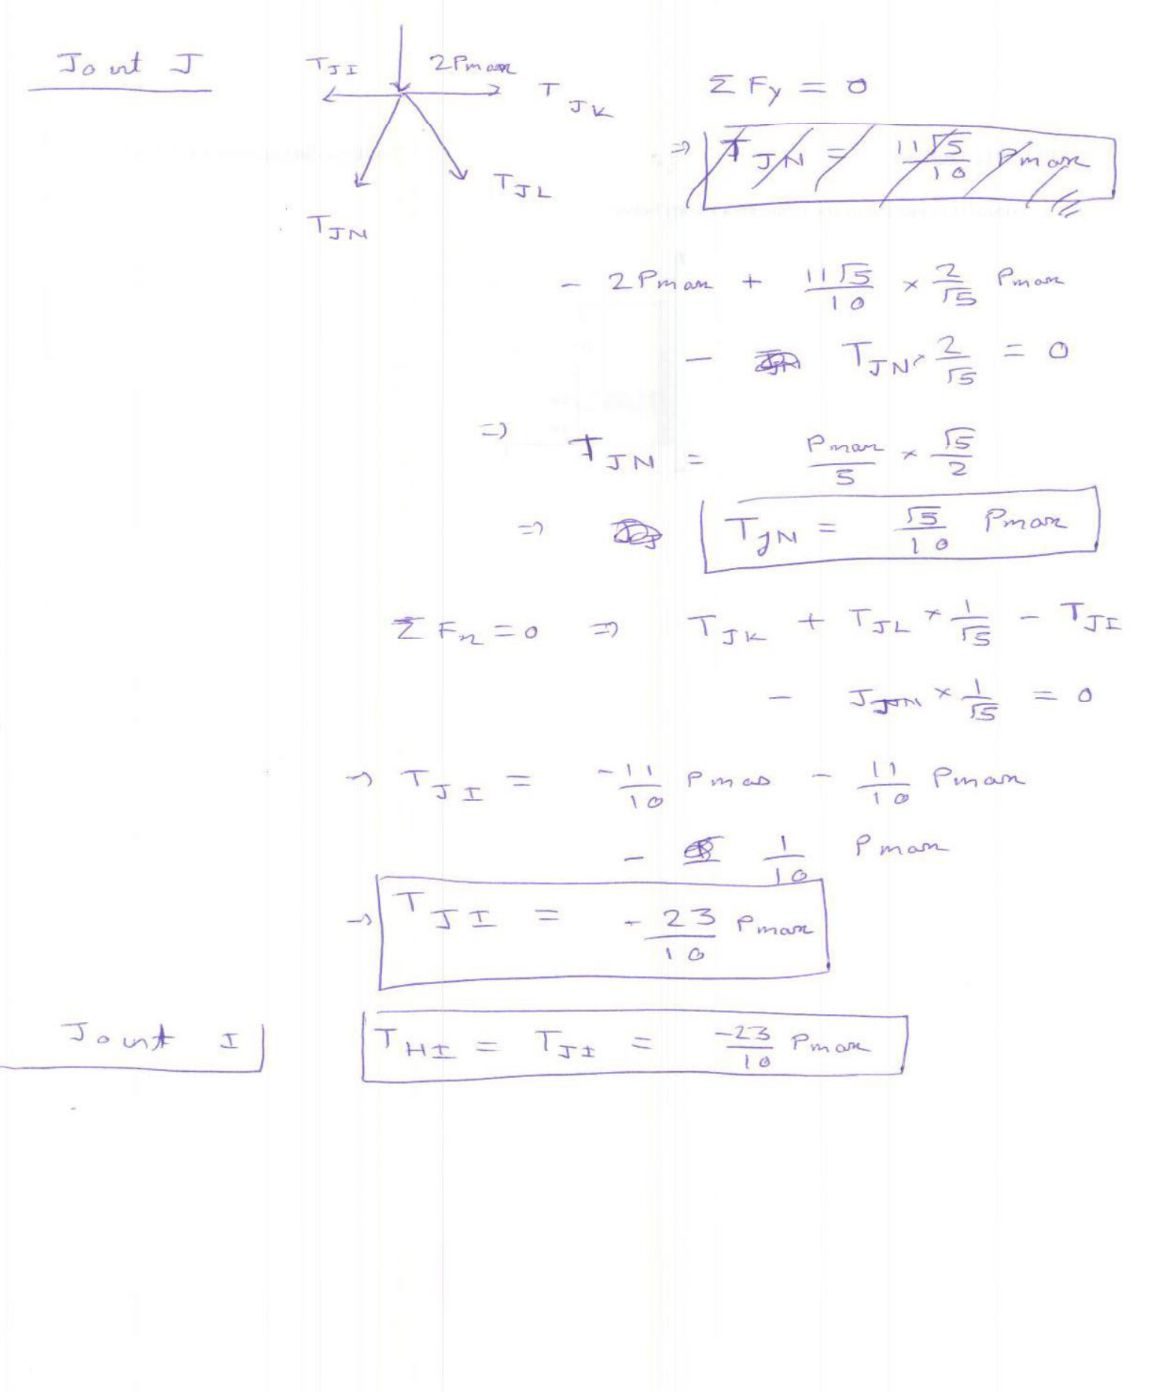 Joint J
T_JI 2Pmax T_JK
T_JN T_JL
Σ Fy = 0
⇒ T_JN = 11√5/10 Pmax
- 2Pmax + 11√5/10 × 2/√5 Pmax
- T_JN × 2/√5 = 0
⇒ T_JN = Pmax/5 × √5/2
⇒ T_JN = √5/10 Pmax
Σ Fx = 0 ⇒ T_JK + T_JL × 1/√5 - T_JI
- J_JN × 1/√5 = 0
→ T_JI = -11/10 Pmax - 11/10 Pmax
- 1/10 Pmax
→ T_JI = -23/10 Pmax
Joint I
T_HI = T_JI = -23/10 Pmax